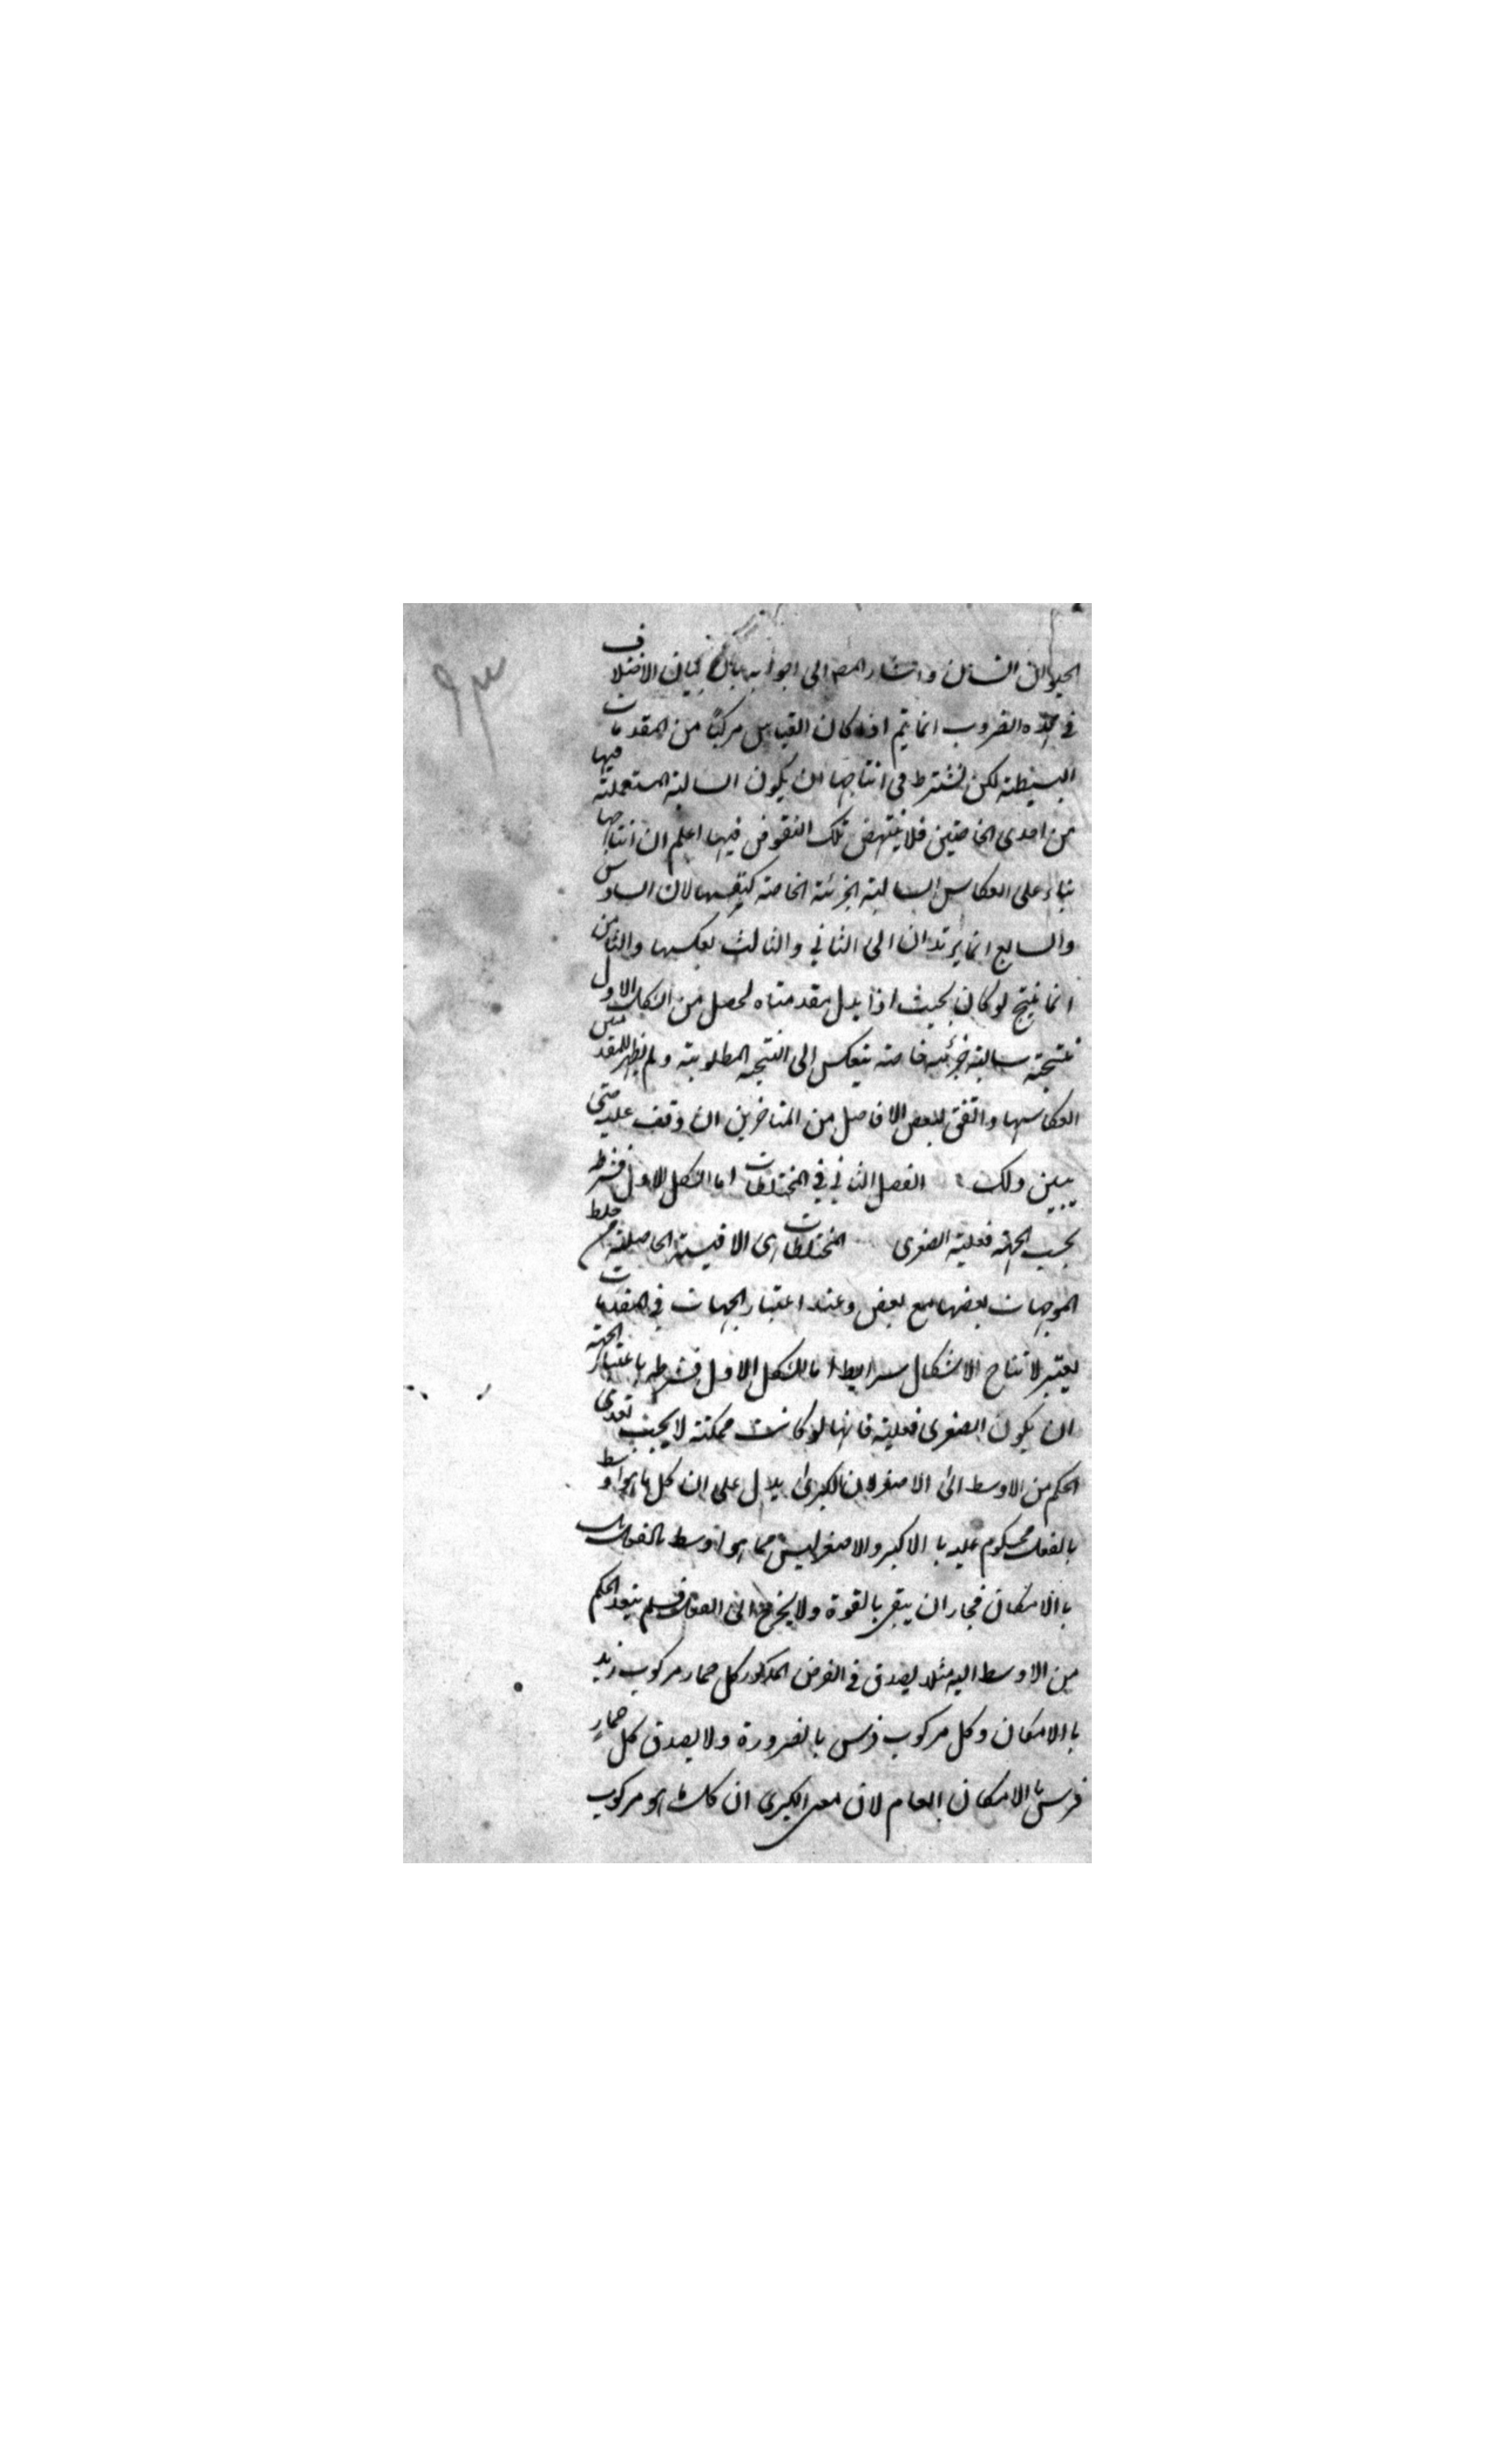 ٩٣
الحيوان انسان واشار المص الى اجوابه بان بيان الاختلاف
في هذه الضروب انما يتم اذا كان القياس مركبًا من المقدمات
البسيطة لكن نشترط في انتاجها ان يكون السالبة المستعملة فيها
من احدى الخاصتين فلا ينتهض تلك النقوض فيها اعلم ان انتاجها
بناء على انعكاس السالبة الجزئية الخاصة كنفسها لان السادس
والسابع انما يرتدان الى الثاني والثالث بعكسها والثامن
انما ينتج لو كان بحيث اذا بدل مقدمتاه لحصل من الشكل الاول
نتيجة سالبة جزئية خاصة ينعكس الى النتيجة المطلوبة ولم يظهر للمتقدمين
انعكاسها واتفق لبعض الافاضل من المتاخرين ان وقف عليه حتى
يبين ذلك الفصل الثاني في المختلطات اما الشكل الاول فشرطه
بحسب الجهة فعلية الصغرى المختلطات هى الاقيسة الحاصلة من خلط
الموجهات بعضها مع بعض وعند اعتبار الجهات في المقدمات
يعتبر لانتاج الاشكال شرايط اما الشكل الاول فشرطه باعتبار الجهة
ان يكون الصغرى فعلية فانها لو كانت ممكنة لا يجب تعدى
الحكم من الاوسط الى الاصغر لان الكبرى يدل على ان كل ما هو اوسط
بالفعل محكوم عليه با الاكبر والاصغر ليس مما هو اوسط بالفعل بل
با الامكان فجاز ان يبقى بالقوة ولا يخرج الى الفعل فلم يتعد الحكم
من الاوسط اليه مثلا يصدق في الفرض المذكور كل حمار مركوب زيد
با الامكان وكل مركوب فرس بالضرورة ولا يصدق كل حمار
فرس با الامكان العام لان معنى الكبرى ان كل ما هو مركوب